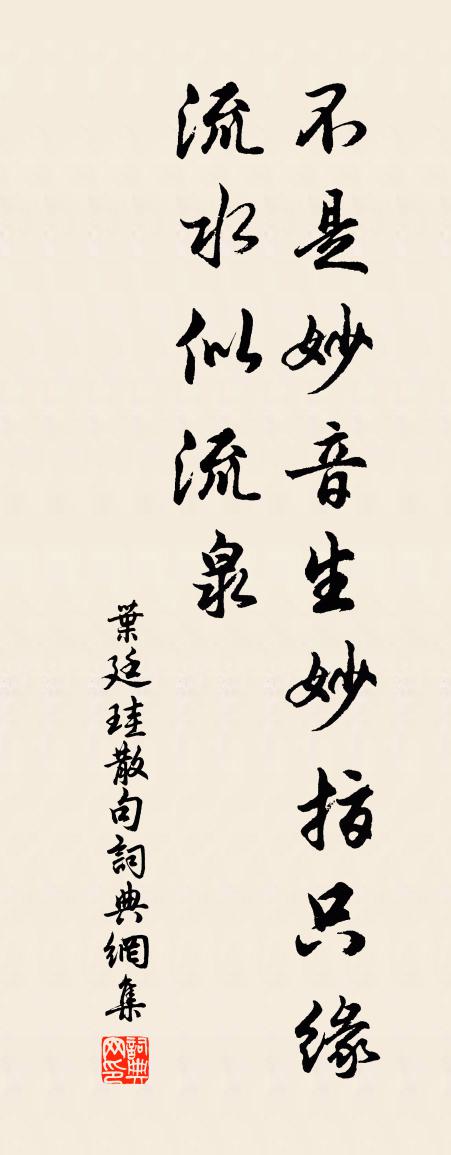 不是妙音生妙指只缘
流水似流泉
葉廷珪散句詞典網集
詞典网印